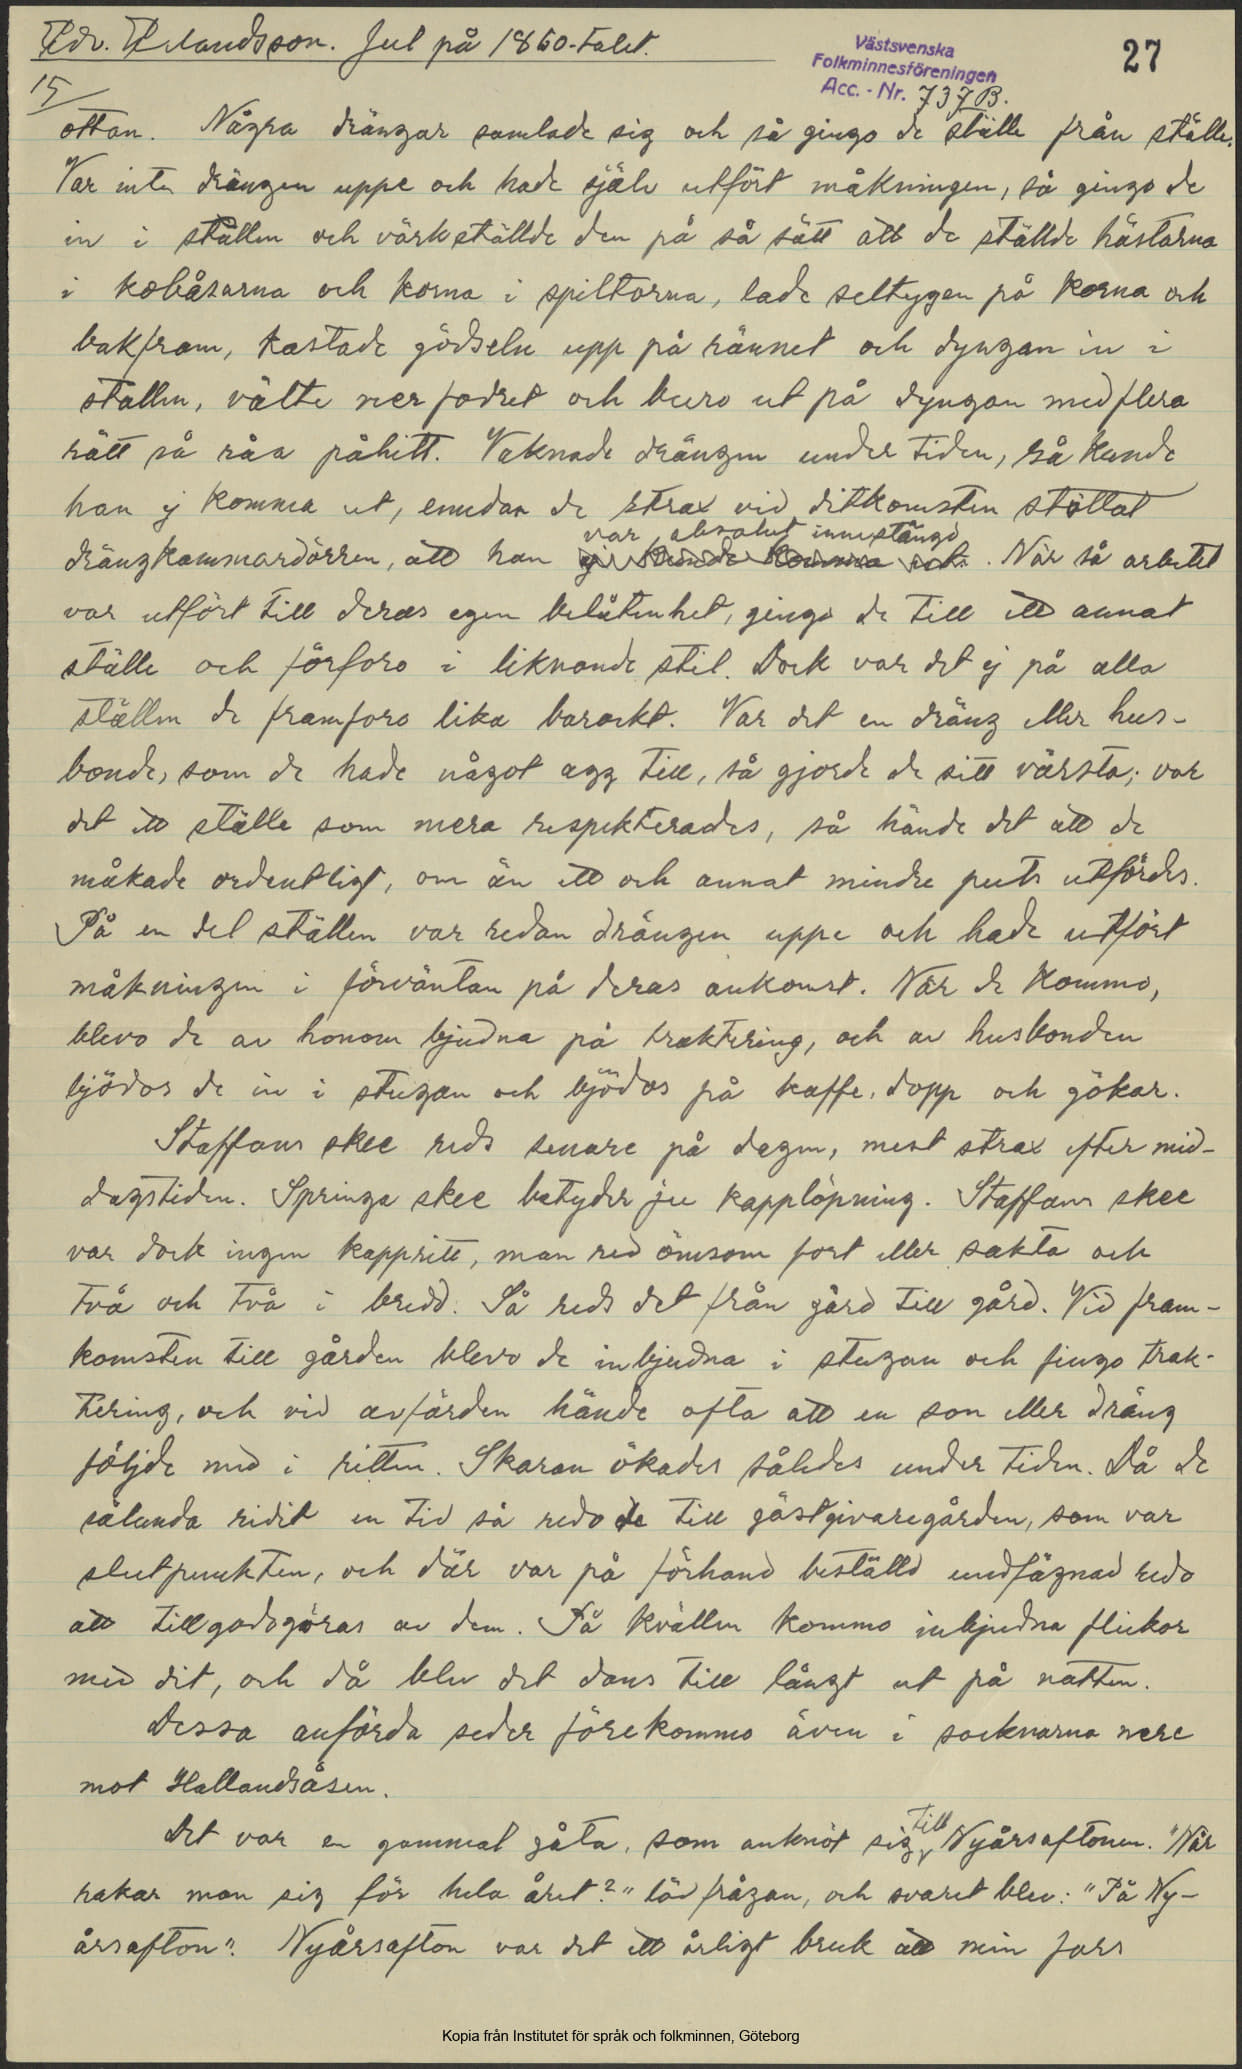 Edv. Erlandsson. Jul på 1860-talet.
Västsvenska
Folkminnesföreningen
Acc. - Nr. 737B.
27
15
ottan. Några drängar samlade sig och så gingo de ställe från ställe.
Var inte drängen uppe och hade själv utfört måkningen, så gingo de
in i stallen och värkställde den på så sätt att de ställde hästarna
i kobåsarna och korna i spiltorna, lade seltygen på korna och
bakfram, kastade gödseln upp på rännet och dyngan in i
stallen, välte ner fodret och buro ut på dyngan med flera
rätt så råa påhitt. Vaknade drängen under tiden, så kunde
han ej komma ut, emedan de strax vid ditkomsten ställat
var absolut innestängd
drängkammardörren, att han ej kunde komma ut. När så arbetet
var utfört till deras egen belåtenhet, gingo de till ett annat
ställe och förforo i liknande stil. Dock var det ej på alla
ställen de framforo lika barockt. Var det en dräng eller hus-
bonde, som de hade något agg till, så gjorde de sitt värsta; var
det ett ställe som mera respekterades, så hände det att de
måkade ordentligt, om än ett och annat mindre puts utfördes.
På en del ställen var redan drängen uppe och hade utfört
måkningen i förväntan på deras ankomst. När de kommo,
blevo de av honom bjudna på traktering, och av husbonden
bjödos de in i stugan och bjödos på kaffe, dopp och gökar.
Staffans skee reds senare på dagen, mest strax efter mid-
dagstiden. Springa skee betyder ju kapplöpning. Staffans skee
var dock ingen kappritt, man red ömsom fort eller sakta och
två och två i bredd. Så reds det från gård till gård. Vid fram-
komsten till gården blevo de inbjudna i stugan och fingo trak-
tering, och vid avfärden hände ofta att en son eller dräng
följde med i ritten. Skaran ökades således under tiden. Då de
sålunda ridit en tid så redo de till gästgivaregården, som var
slutpunkten, och där var på förhand beställd undfägnad redo
att tillgodogöras av dem. På kvällen kommo inbjudna flickor
med dit, och då blev det dans till långt ut på natten.
Dessa anförda seder förekommo även i socknarna nere
mot Hallandsåsen.
till
Det var en gammal gåta, som anknöt sig Nyårsaftonen. "När
rakar man sig för hela året?" löd frågan, och svaret blev: "På Ny-
årsafton". Nyårsafton var det ett årligt bruk att min fars
Kopia från Institutet för språk och folkminnen, Göteborg